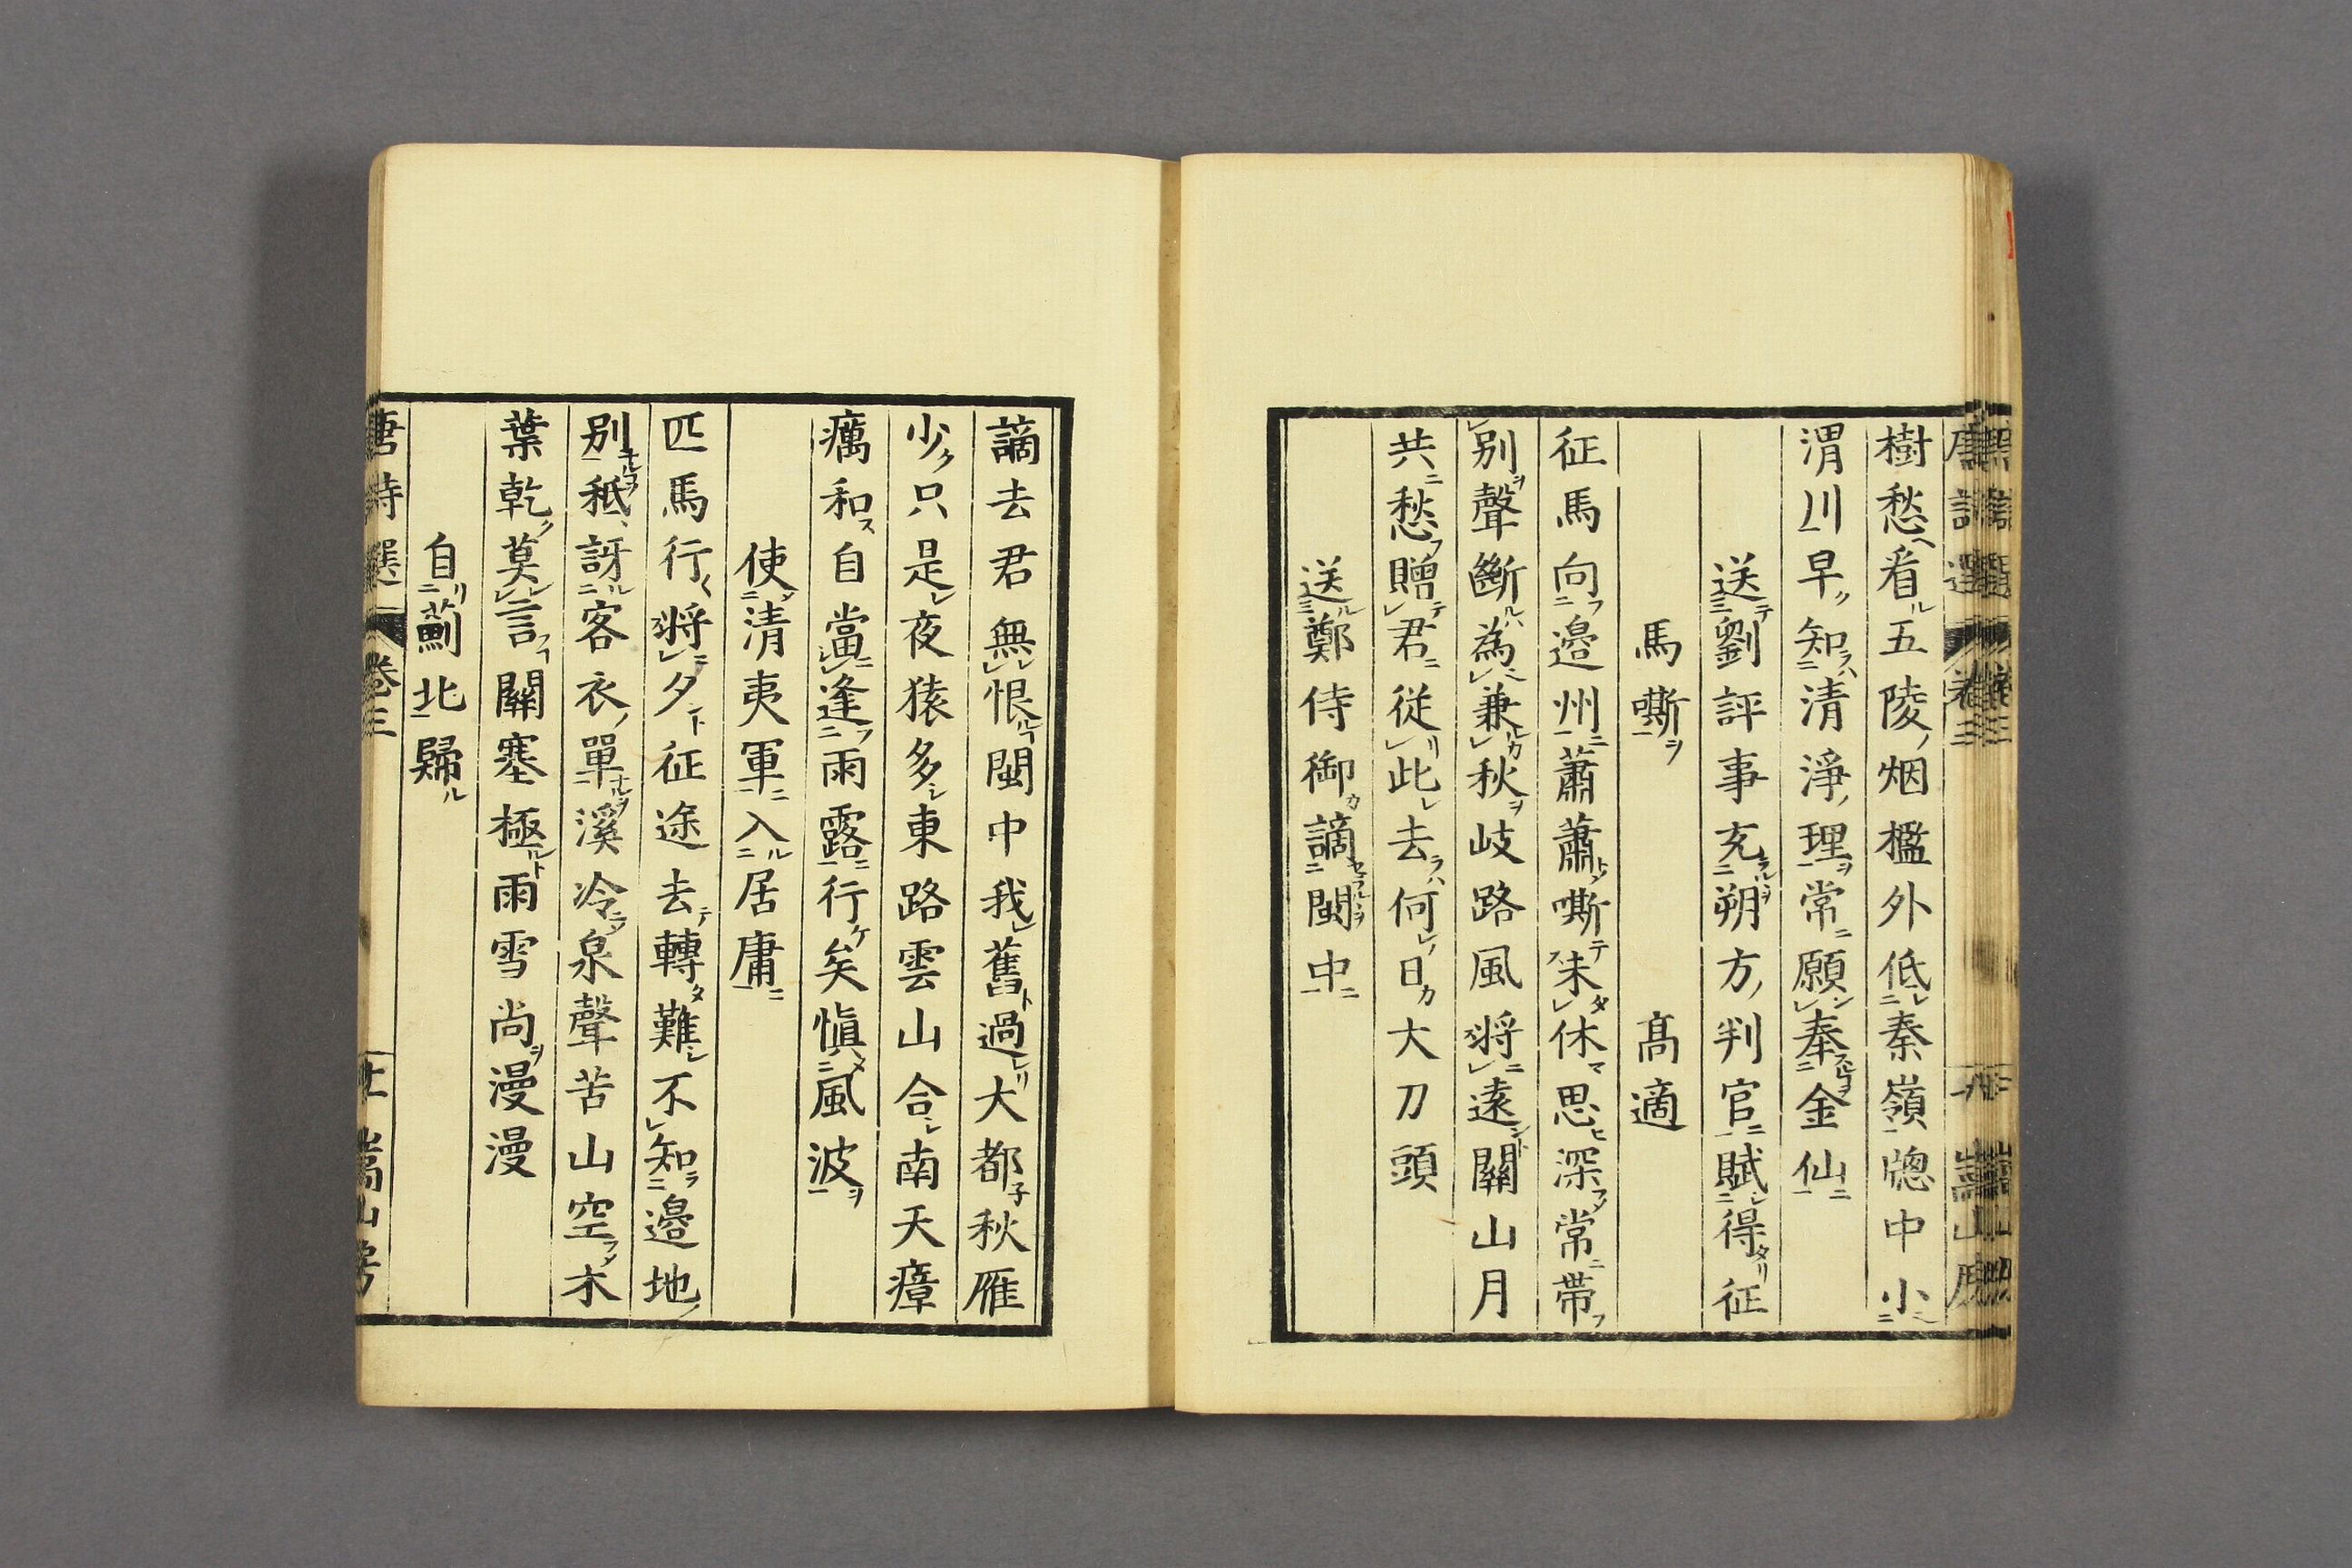 樹愁看五陵烟檻外低秦嶺牕中小
渭川早知清淨理常願奉金仙
送劉評事充朔方判官賦得征
馬嘶 高適
征馬向邉州蕭蕭嘶未休思深常帶
别聲斷為兼秋岐路風將遠關山月
共愁贈君從此去何日大刀頭
送鄭侍御謫閩中
謫去君無恨閩中我舊過大都秋雁
少只是夜猿多東路雲山合南天瘴
癘和自當逢雨露行矣愼風波
使清夷軍入居庸
匹馬行將夕征途去轉難不知邉地
别秪訝客衣單溪冷泉聲苦山空木
葉乾莫言關塞極雨雪尚漫漫
自薊北歸
唐詩選 卷三 嵩山房